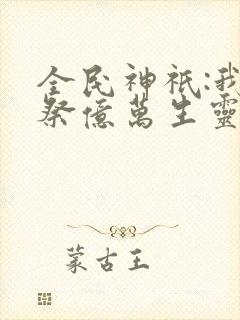 全民神祇:我
祭億萬生靈
蒙古王